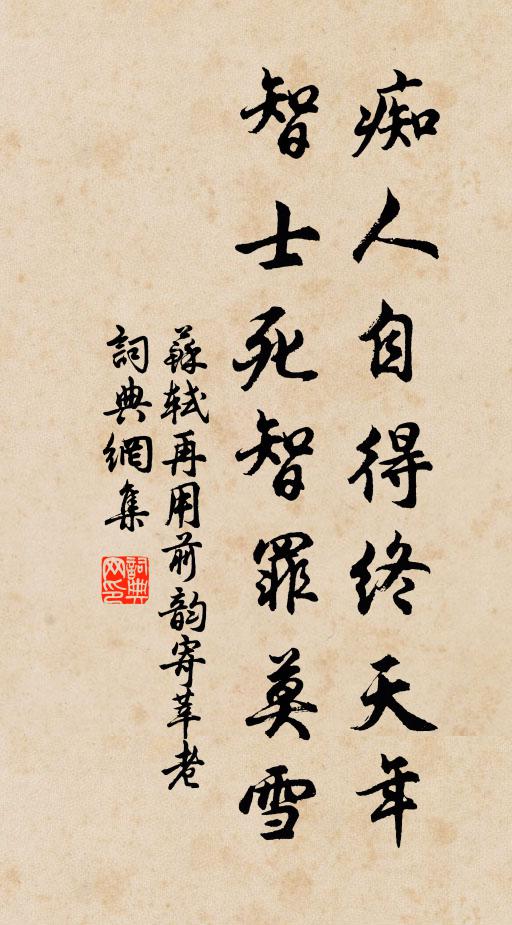 痴人自得終天年
智士死智罪莫雪
蘇軾再用前韵寄莘老
詞典網集
詞典网印